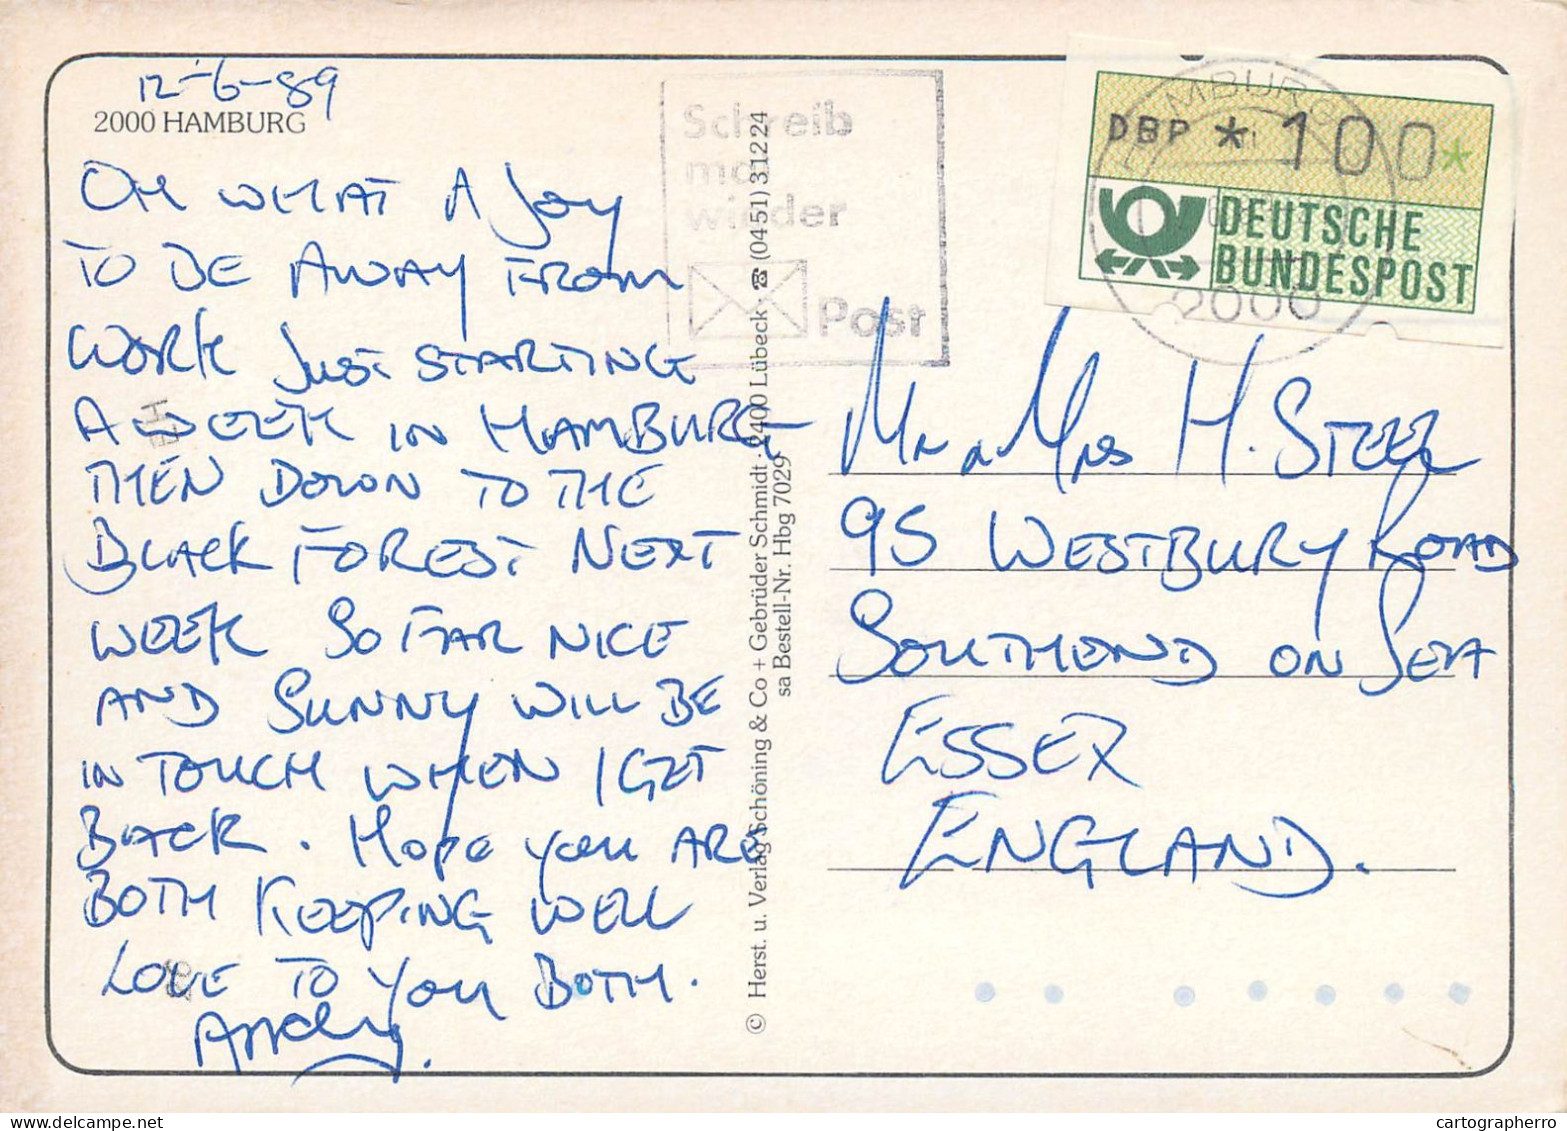 12-6-89
2000 HAMBURG
OH WHAT A JOY
TO BE AWAY FROM
WORK JUST STARTING
A WEEK IN HAMBURG
THEN DOWN TO THE
BLACK FOREST NEXT
WEEK SO FAR NICE
AND SUNNY WILL BE
IN TOUCH WHEN I GET
BACK. HOPE YOU ARE
BOTH KEEPING WELL
LOVE TO YOU BOTH.
Andy.
Schreib
mal
wieder
Post
© Herst. u. Verlag Schöning & Co + Gebrüder Schmidt · 2400 Lübeck ☎ (04 51) 3 12 24
sa Bestell-Nr. Hbg 7029
HAMBURG
2000
DBP * 100*
DEUTSCHE
BUNDESPOST
Mr & Mrs H. STEEL
95 WESTBURY ROAD
SOUTHEND ON SEA
ESSEX
ENGLAND.
cartographerro